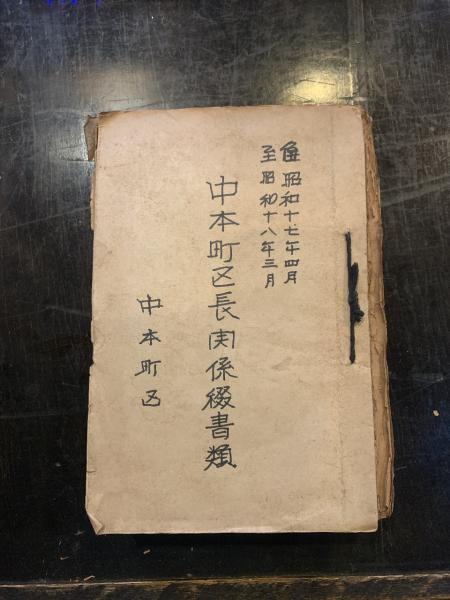 自昭和十七年四月
至昭和十八年三月
中本町区長関係綴書類
中本町区